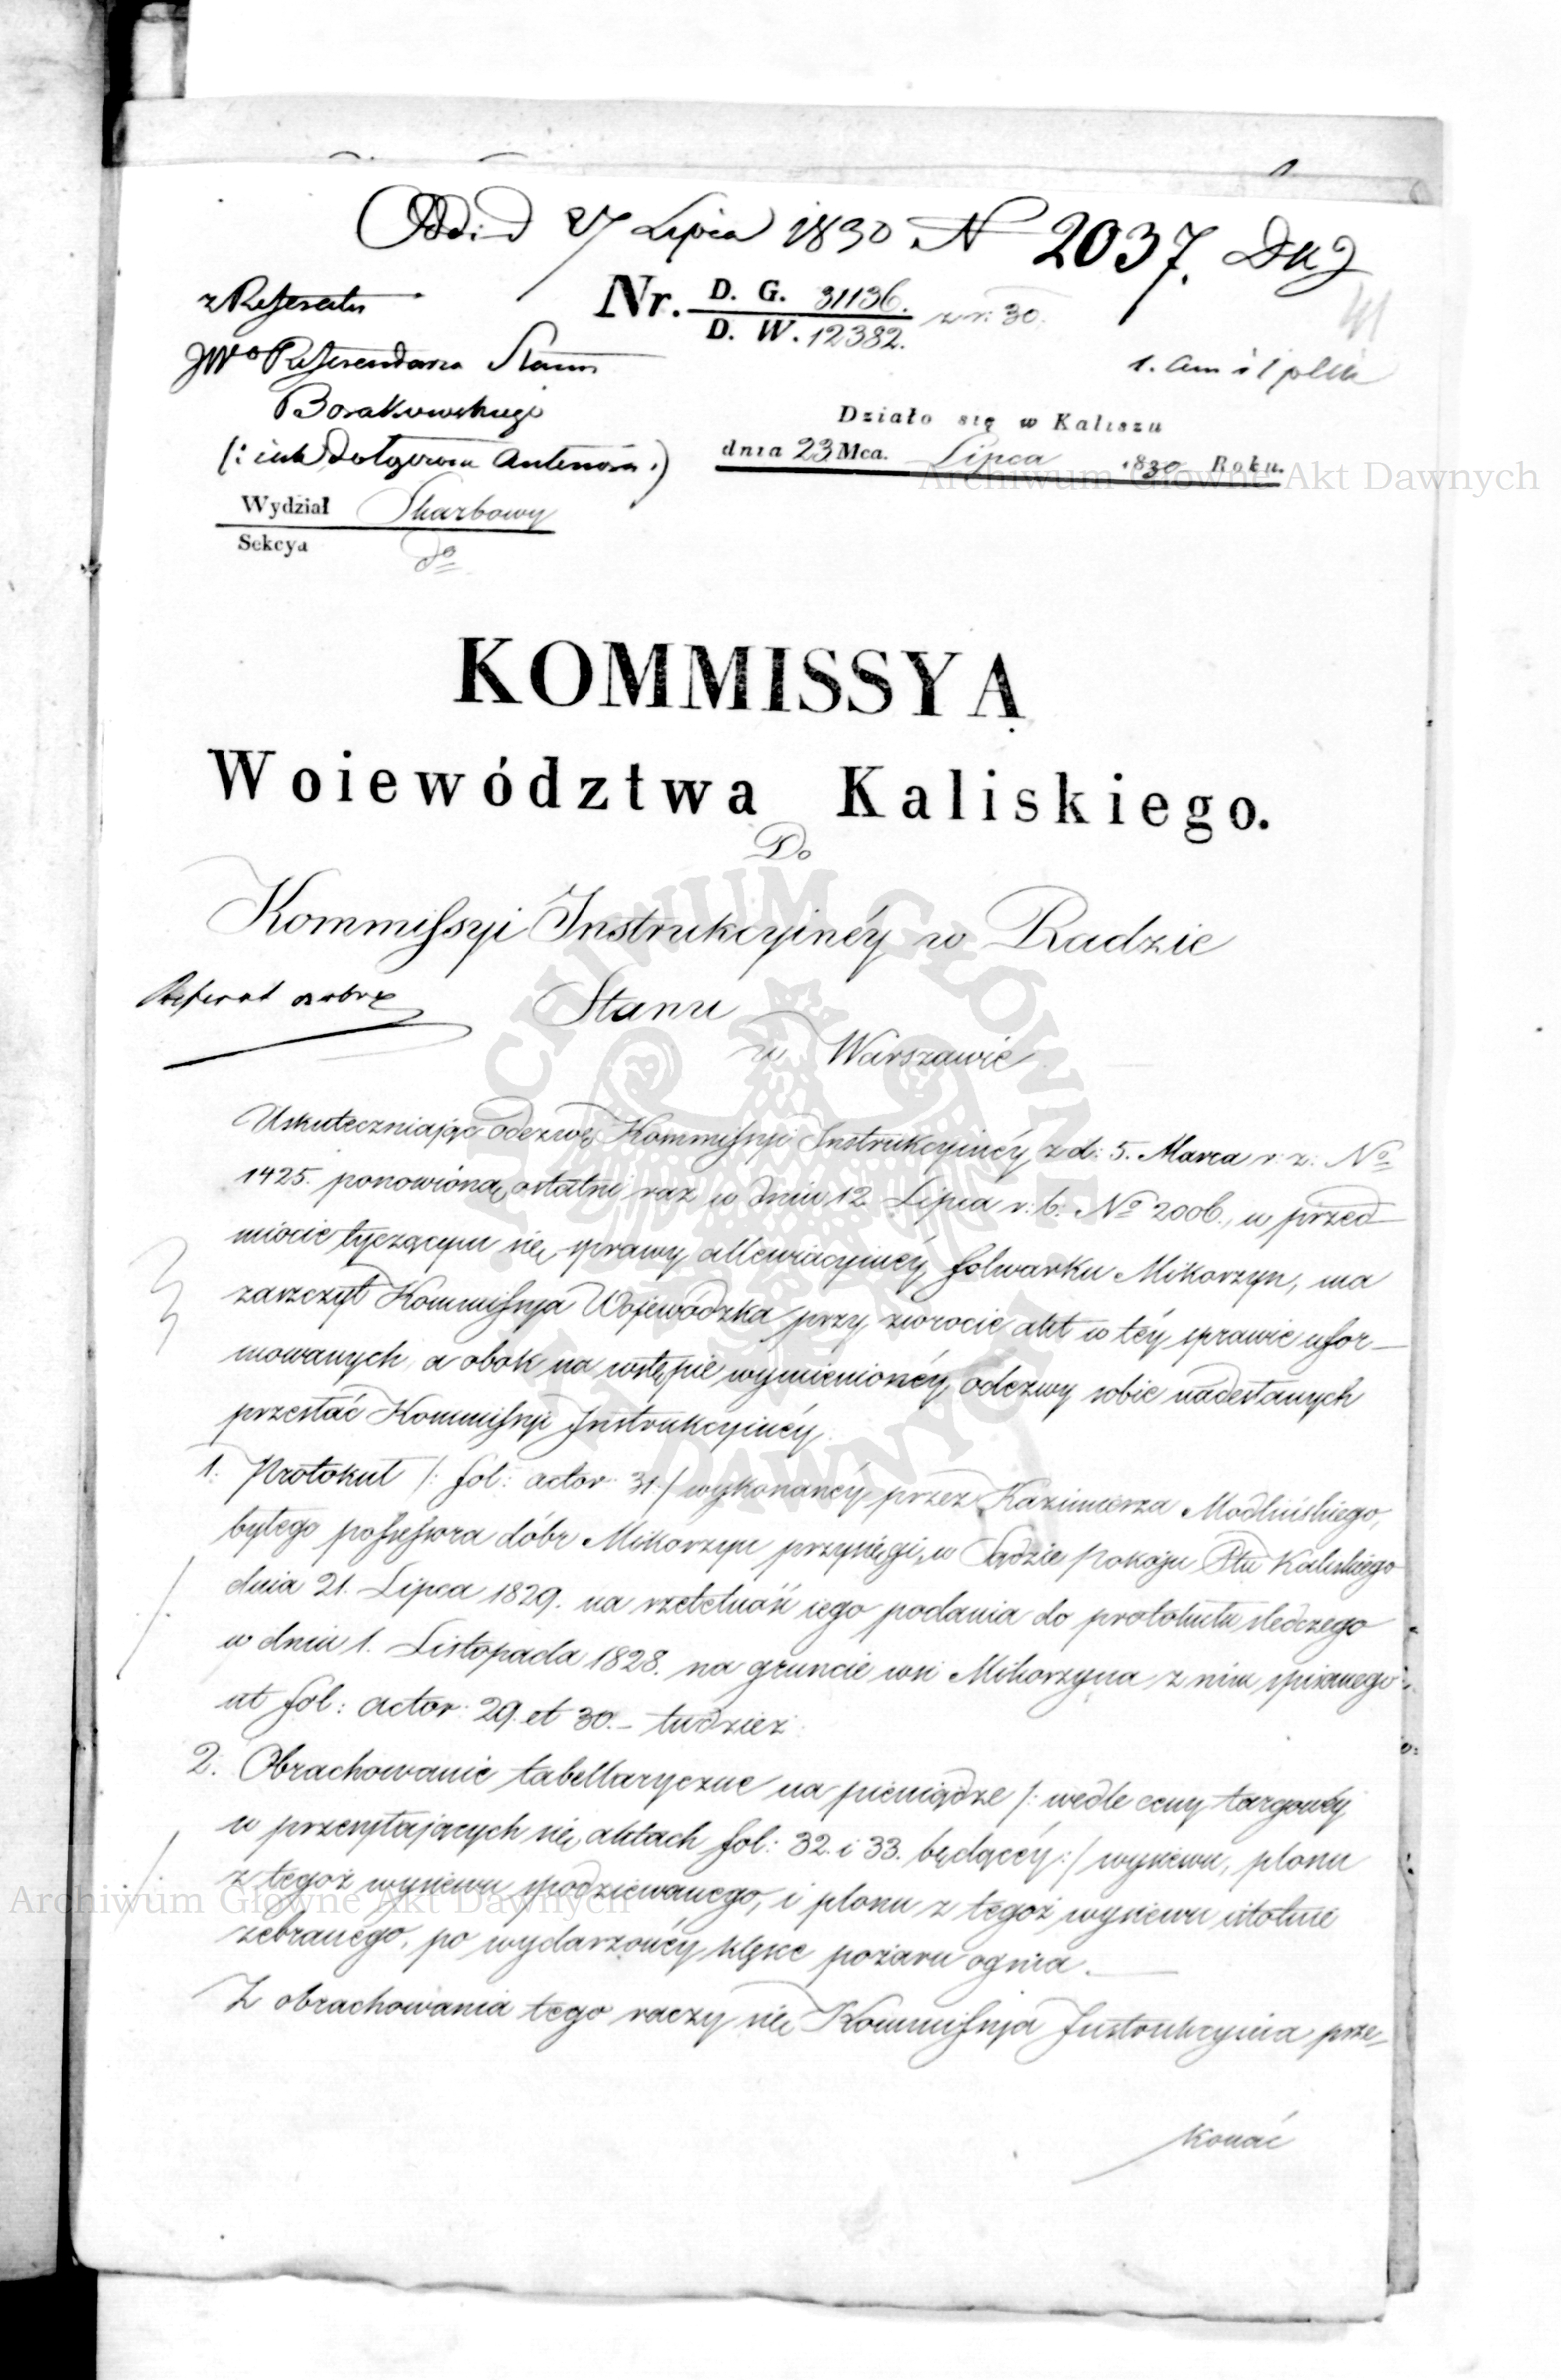 1
Odd: d 27 Lipca 1830 N 2037.
z Referatu
Nr. D. G. 31136. z r: 30.
D. W. 12382.
JWo Referendarza Stanu
Borakowskiego
1.
Działo się w Kaliszu
dnia 23 Mca. Lipca 1830 Roku.
Archiwum Główne Akt Dawnych
Wydział Skarbowy
Sekcya do
KOMMISSYA
Woiewództwa Kaliskiego.
Do
Kommissyi Instrukcyinéy w Radzie
Stanu
Referat
w Warszawie
Uskuteczniając odezwę Kommissyi Instrukcyinéy z d: 5. Marca r: z: No
1425. ponowioną ostatni raz w dniu 12 Lipca r: b: No 2006., w przed-
miocie tyczącym się sprawy allewiacyinéy folwarku Mikorzyn, ma
zaszczyt Kommissyja Wojewódzka przy zwrocie akt w téy sprawie ufor-
mowanych, a obok na wstępie wymienionéy odezwy sobie nadesłanych
przesłać Kommissyi Instrukcyinéy:
1: Protokuł /: fol: actor: 31 :/ wykonanéy przez Kazimierza Modlińskiego,
byłego possessora dóbr Mikorzyn przysięgi, w Sądzie Pokoju Ptu Kaliskiego
dnia 21. Lipca 1829. na rzetelność iego podania do protokułu śledczego
w dniu 1. Listopada 1828. na gruncie wsi Mikorzyna z nim spisanego
ut fol: actor: 29. et 30. – tudzież:
2. Obrachowanie tabellaryczne na pieniądze /: wedle ceny targowéy
w przesyłających się aktach fol: 32. i 33. będącéy :/ wysiewu, plonu
z tegoż wysiewu spodziewanego, i plonu z tegoż wysiewu istotnie
Archiwum Główne Akt Dawnych
zebranego, po wydarzonéy klęsce pożaru ognia. —
Z obrachowania tego raczy się Kommissyja Instrukcyina prze-
konać
ARCHIWUM GŁÓWNE AKT DAWNYCH